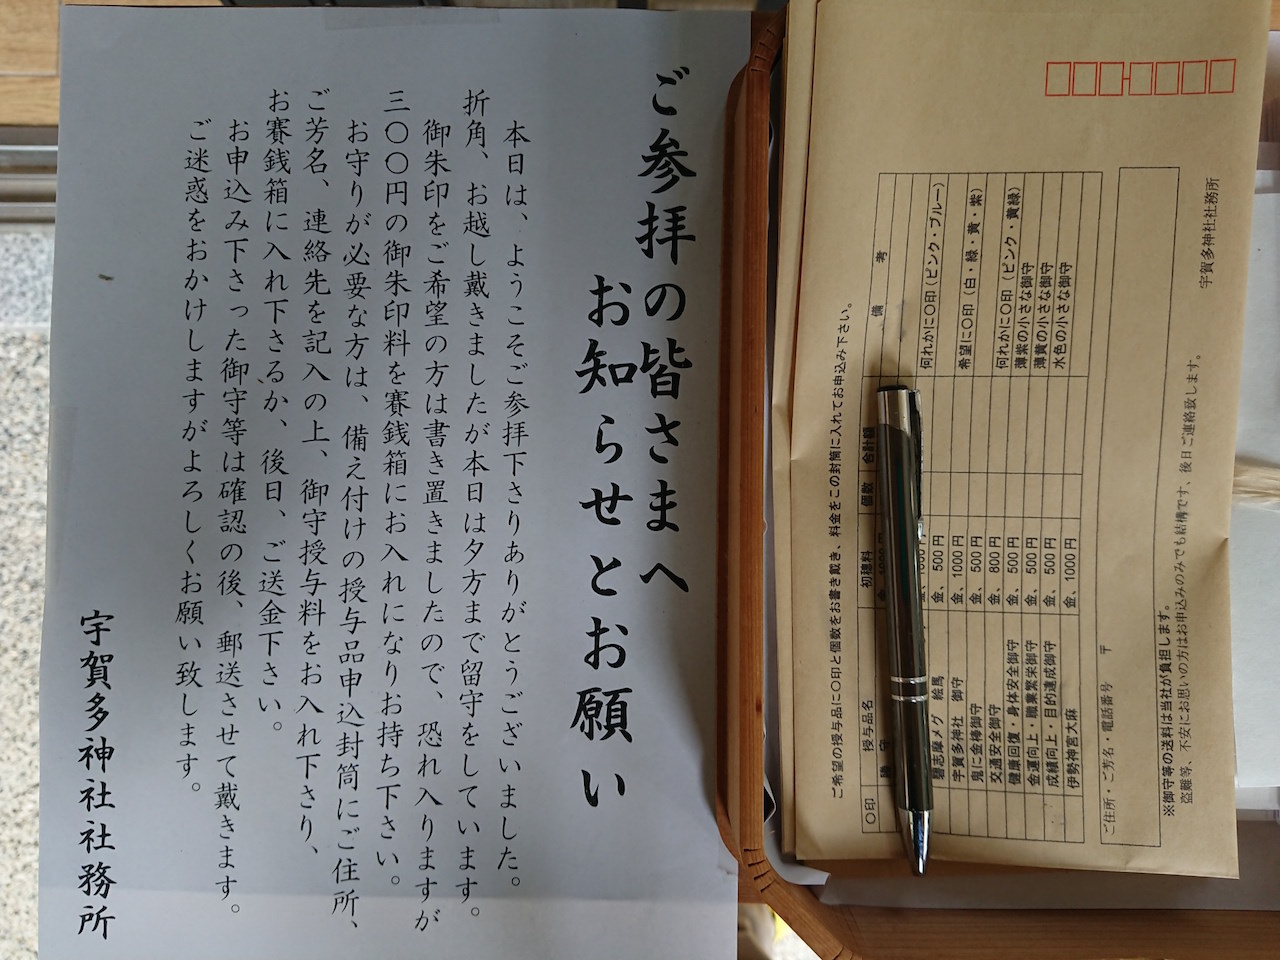 ご参拝の皆さまへ
お知らせとお願い
本日は、ようこそご参拝下さりありがとうございました。
折角、お越し戴きましたが本日は夕方まで留守をしています。
御朱印をご希望の方は書き置きましたので、恐れ入りますが
三〇〇円の御朱印料を賽銭箱にお入れになりお持ち下さい。
お守りが必要な方は、備え付けの授与品申込封筒にご住所、
ご芳名、連絡先を記入の上、御守授与料をお入れ下さり、
お賽銭箱に入れ下さるか、後日、ご送金下さい。
お申込み下さった御守等は確認の後、郵送させて戴きます。
ご迷惑をおかけしますがよろしくお願い致します。
宇賀多神社社務所
ご希望の授与品に〇印と個数をお書き戴き、料金をこの封筒に入れてお申込み下さい。
〇印 授与品名 初穂料 個数 合計額 備考
守
碧志摩メグ 絵馬 金、500円 何れかに〇印(ピンク・ブルー)
宇賀多神社 御守 金、1000円
鬼に金棒御守 金、500円 希望に〇印(白・緑・黄・紫)
交通安全御守 金、800円
健康回復・身体安全御守 金、500円 何れかに〇印(ピンク・黄緑)
金運向上・職業繁栄御守 金、500円 薄紫の小さな御守
成績向上・目的達成御守 金、500円 薄黄の小さな御守
伊勢神宮大麻 金、1000円 水色の小さな御守
ご住所・ご芳名・電話番号 〒
※御守等の送料は当社が負担します。
盗難等、不安にお思いの方はお申込みのみでも結構です、後日ご連絡致します。
宇賀多神社社務所